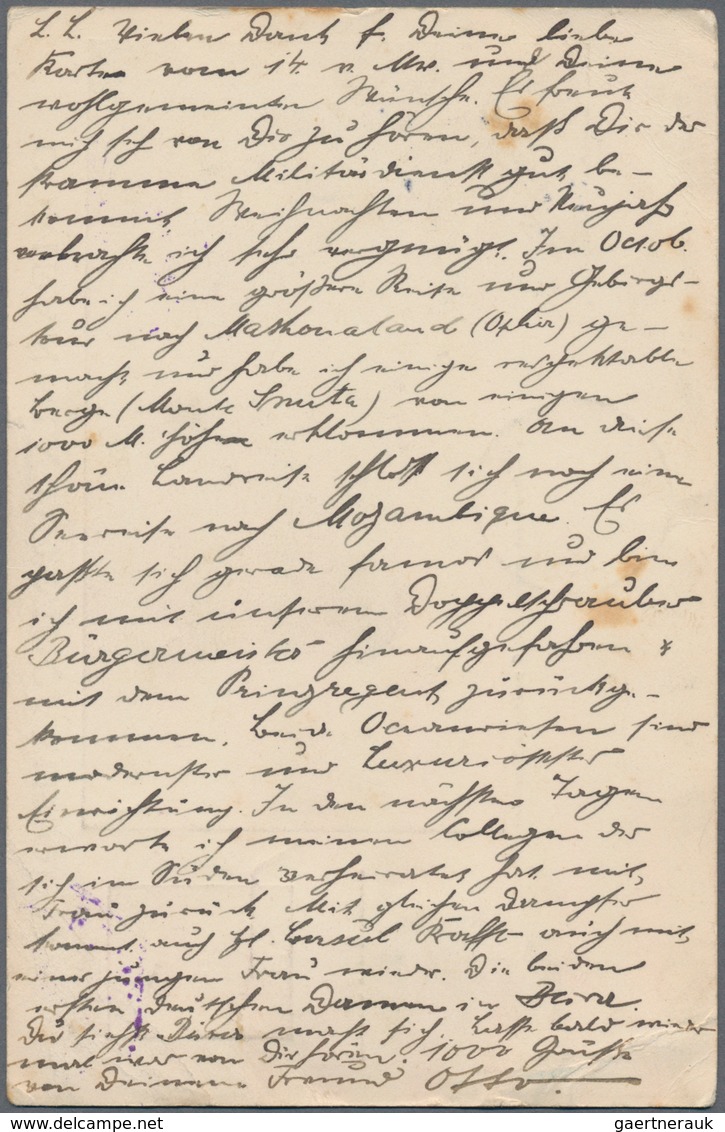 L. L. Vielen Dank f. Deine liebe
Karte vom 14. v. Mts. und Deine
wohlgemeinten Wünsche. Es freut
mich sehr von Dir zu hören, daß Dir der
stramme Militärdienst gut be-
kommt. Weihnachten und Neujahr
verbrachte ich sehr vergnügt. Im Octob.
habe ich eine größere Reise und Gebirgs-
tour nach Mashonaland (Ophir) ge-
macht und habe ich einige respektable
Berge (Monte) von einigen
1000 M. Höhe erklommen. An diese
schöne Landreise schloß sich noch eine
Seereise nach Mozambique. Es
paßte sich gerade famos und bin
ich mit unserem Doppelschrauber
Bürgermeister hinaufgefahren &
mit dem Prinzregent zurückge-
kommen. Beide Oceanriesen sind
modernster und luxuriöster
Einrichtung. In den nächsten Tagen
erwarte ich meinen Collegen der
sich im Süden verheiratet hat mit
Frau zurück. Mit gleichem Dampfer
kommt auch auch mit
einer jungen Frau wieder. Die beiden
ersten deutschen Damen in Beira.
Du siehst Beira macht sich. Lasse bald wieder
mal was von Dir hören. 1000 Grüße
von Deinem Freund Otto.
gaertnerauk